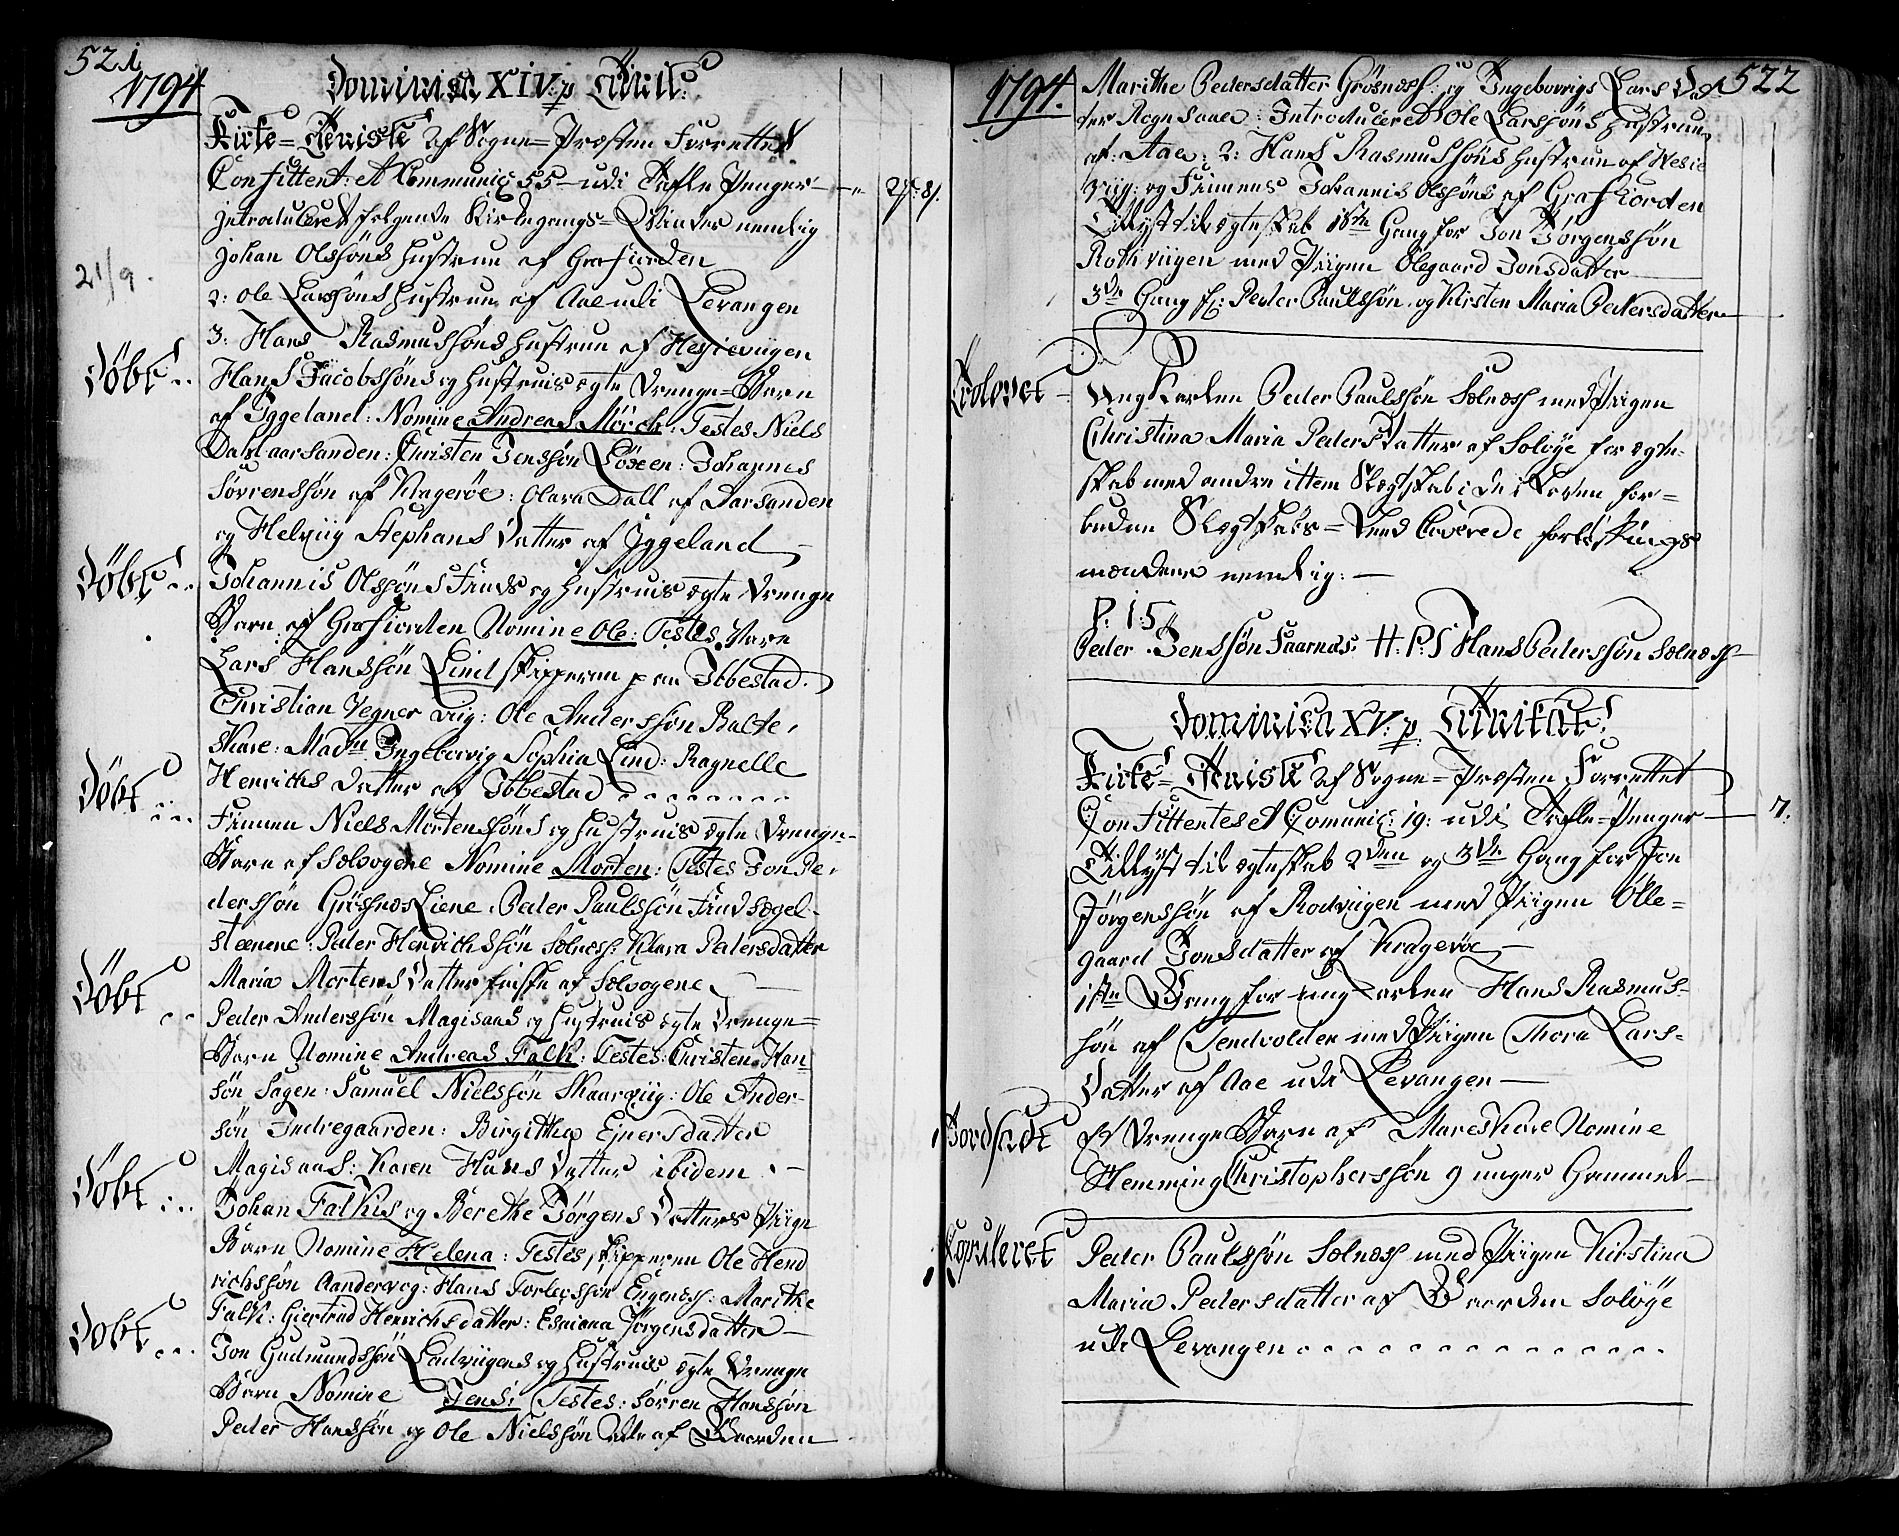 521
1794
Dominica XIV: p Trinit:
Kirke-Tieniste af Sogne-Præsten Forrettet
Confittent: et Communic: 55 - udi Tafle Penger
introduceret følgende Kirkegangs-Qvinder nemlig
Johan Olssøns Hustrue af Grafjorden
21/9.
2: Ole Larssøns Hustrue af Aae udi Levangen
3: Hans Rasmussøns Hustrue af Hesieviigen
Døbt
Hans Jacobssøns og Hustrues ægte Drenge-Barn
af Iggeland: Nomine Andreas Mörch: Testes Niels
Dahl aarsanden: Christen Jenssøn: Johannes
Sörrenssøn af Kragerøe: Olava Dall af Aarsanden
og Helviig Stephans Datter af Iggeland
Døbt
Johannis Olssøns Finds og Hustrues ægte Drenge
Barn af Grafjorden Nomine Ole: Testes Vare
Lars Hanssøn Lind Skipperen paa Ibbestad
Christian Vegner viig: Ole Anderssøn Balte,
Skare: Madm Ingeborrig Sophia Lind: Ragnelle
Henrichs Datter af Ibbestad
Døbt
Finnen Niels Mortenssøns og Hustrues ægte Drenge-
Barn af Sælvogene Nomine Morten: Testes Jon Pe,
derssøn Grøsnes Liene: Peder Paulssøn Find sægel-
steenene: Peder Henrichssøn Sælnæss: Klara Pedersdatter
Maria Mortens Datter af Sælvogene
Døbt
Peder Anderssøn Magisaas og Hustrues ægte Drenge-
Barn Nomine Andreas Falk: Testes: Christen Han-
søn Sagen: Samuel Nielssøn Skaarviig: Ole Ander-
søn Indregaarden: Birgitha Ejnersdatter
Magisaas: Karen Hans Datter ibidem
Døbt
Johan Falkis og Berethe Jörgens Datters Piige
Barn Nomine Helena: Testes, Skipperen Ole Hend
richssøn Aandervog: Hans Torlevssøn Engenæss: Marithe
Falk: Giertrud Henrichsdatter: Jörgensdatter
Døbt
Jon Gudmundssøn og Hustrues ægte Drenge
Barn Nomine Jens: Testes: Sörren Hanssøn
Peder Hanssøn og Ole Nielssøn alle af Gaarden
522
1794.
Marithe Pedersdatter Grøsnæss: og Ingeborrigs Lars Dat
ter Rognsaae: Introduceret Ole Larssøns Hustrue
af: Aae: 2: Hans Rasmussøns Hustrue af Hesie
viig: og Finnens Johannis Olssøns af Grafjorden
Tillyst til ægteskab 1ste Gang for Jon Jörgenssøn
Rothviigen med Piigen Olegaard Jonsdatter
3de Gang f: Peder Paulssøn og Kirsten Maria Pedersdatter
Trolovet
Ung Karlen Peder Paulssøn Sælnæss med Piigen
Christina Maria Peders Datter af Soløye for ægte-
skab med andre ittem Slægtskab i de i Loven for-
budne Slægtskabs-Leed Caverede forløfnings
mændene nemlig:
P. 15
Peder Jenssøn H: P: S Hans Pederssøn Sælnæss
Dominica XV: p: Trinitat:
Kirke-Tieniste af Sogne-Præsten Forrettet
Confittentes et Comunic: 19: udi Tafle-Penger 7.
Tillyst til ægteskab 2den og 3de Gang for Jon
Jörgenssøn af Rodviigen med Piigen Olle-
gaard Jonsdatter af Kragerøe
1ste Gang for ung Karlen Hans Rasmus-
søn af Tendvolden med Piigen Thora Lars-
Datter af Aae udi Levangen
Jordfæstet
Et Drenge Barn af Mareskare Nomine
Hemming Christopherssøn 9 uuger Gammel
Copuleret
Peder Paulssøn Sælnæss med Piigen Kirstina
Maria Pedersdatter af Gaarden Soløye
udi Levangen